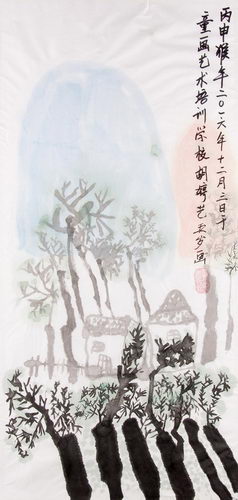 丙申猴年二〇一六年十二月三日于
童画艺术培训学校胡婷艺五岁画